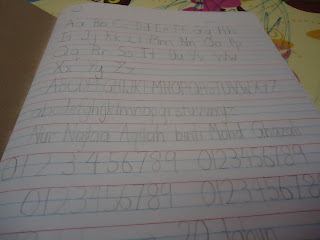 Aa Bb Cc Dd Ee Ff Gg Hh
Ii Jj Kk Ll Mm Nn Oo Pp
Qq Rr Ss Tt Uu Vv Ww
Xx Yy Zz
ABCDEFGHIJKLMNOPQRSTUVWXYZ
abcdefghijklmnopqrstuvwxyz
Nur Aqilah binti Mohd
0123456789 0123456789
0123456789 0123456789
20 tahun